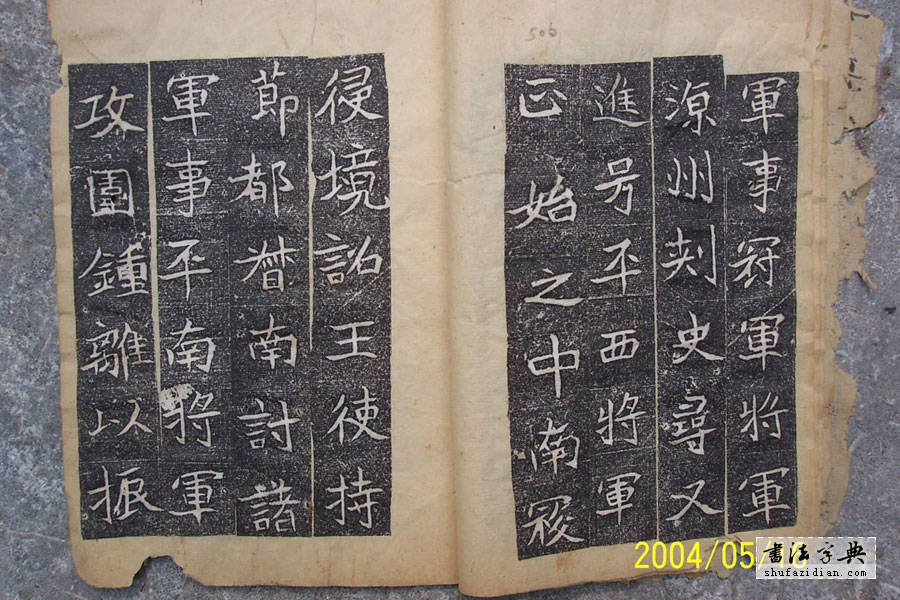 軍事冠軍將軍
涼州刾史尋又
進号平西將軍
正始之中南寇
侵境詔王使持
節都督南討諸
軍事平南將軍
攻圍鍾離以振
506
2004/05/
書法字典
shufazidian.com